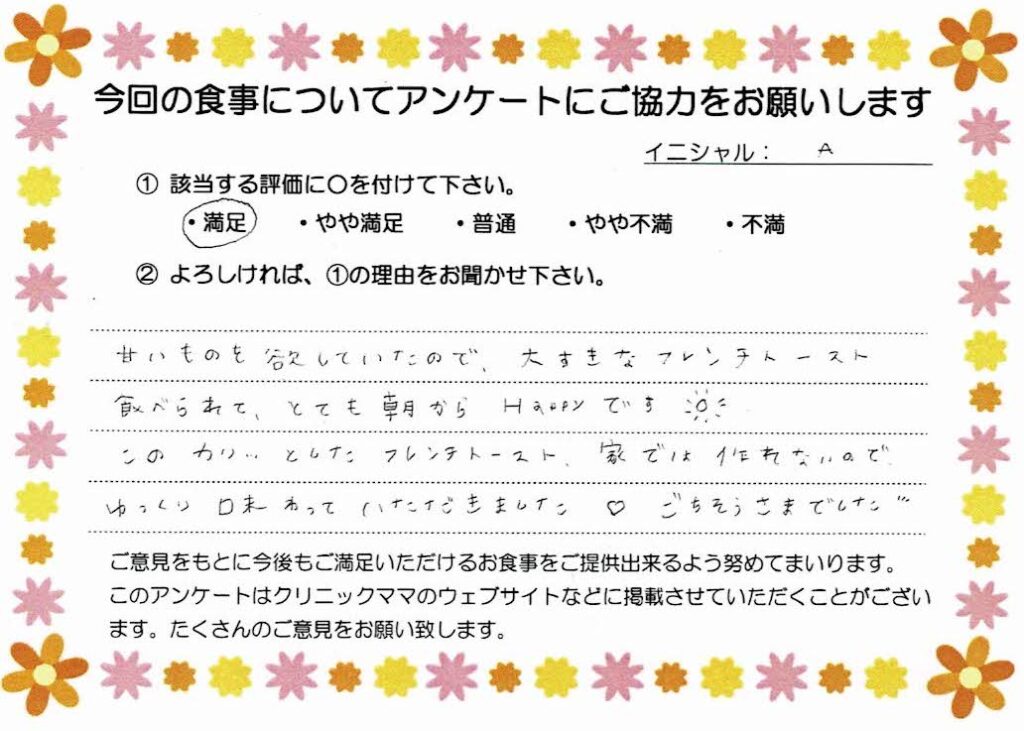 今回の食事についてアンケートにご協力をお願いします
イニシャル： A
① 該当する評価に〇を付けて下さい。
・満足 ・やや満足 ・普通 ・やや不満 ・不満
② よろしければ、①の理由をお聞かせ下さい。
甘いものを欲していたので、大すきなフレンチトースト
食べられて、とても朝から Happyです
この カリッ としたフレンチトースト、家では作れないので、
ゆっくり 味わって いただきました ♡ ごちそうさまでした
ご意見をもとに今後もご満足いただけるお食事をご提供出来るよう努めてまいります。
このアンケートはクリニックママのウェブサイトなどに掲載させていただくことがござい
ます。たくさんのご意見をお願い致します。